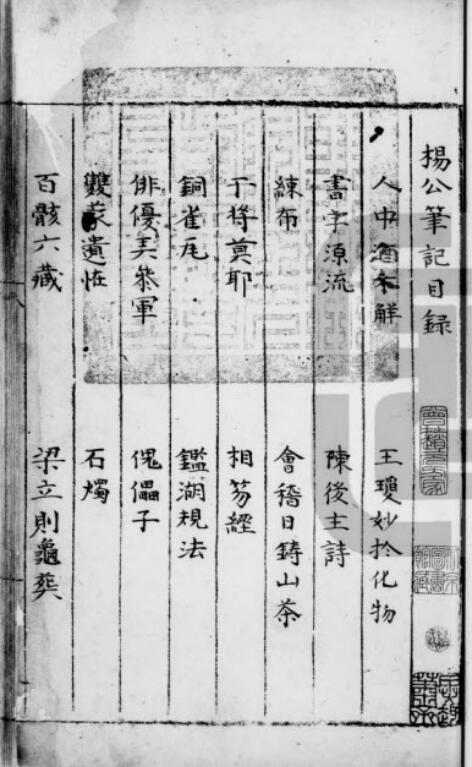 楊公筆記目録
人中酒不解　王瓊妙扵化物
書字源流　陳後主詩
練布　會稽日鋳山茶
干将莫耶　相笏經
銅雀瓦　鑑湖規法
俳優弄叅軍　傀儡子
雙䝉遺恠　石燭
百骸六藏　梁立則龜葬